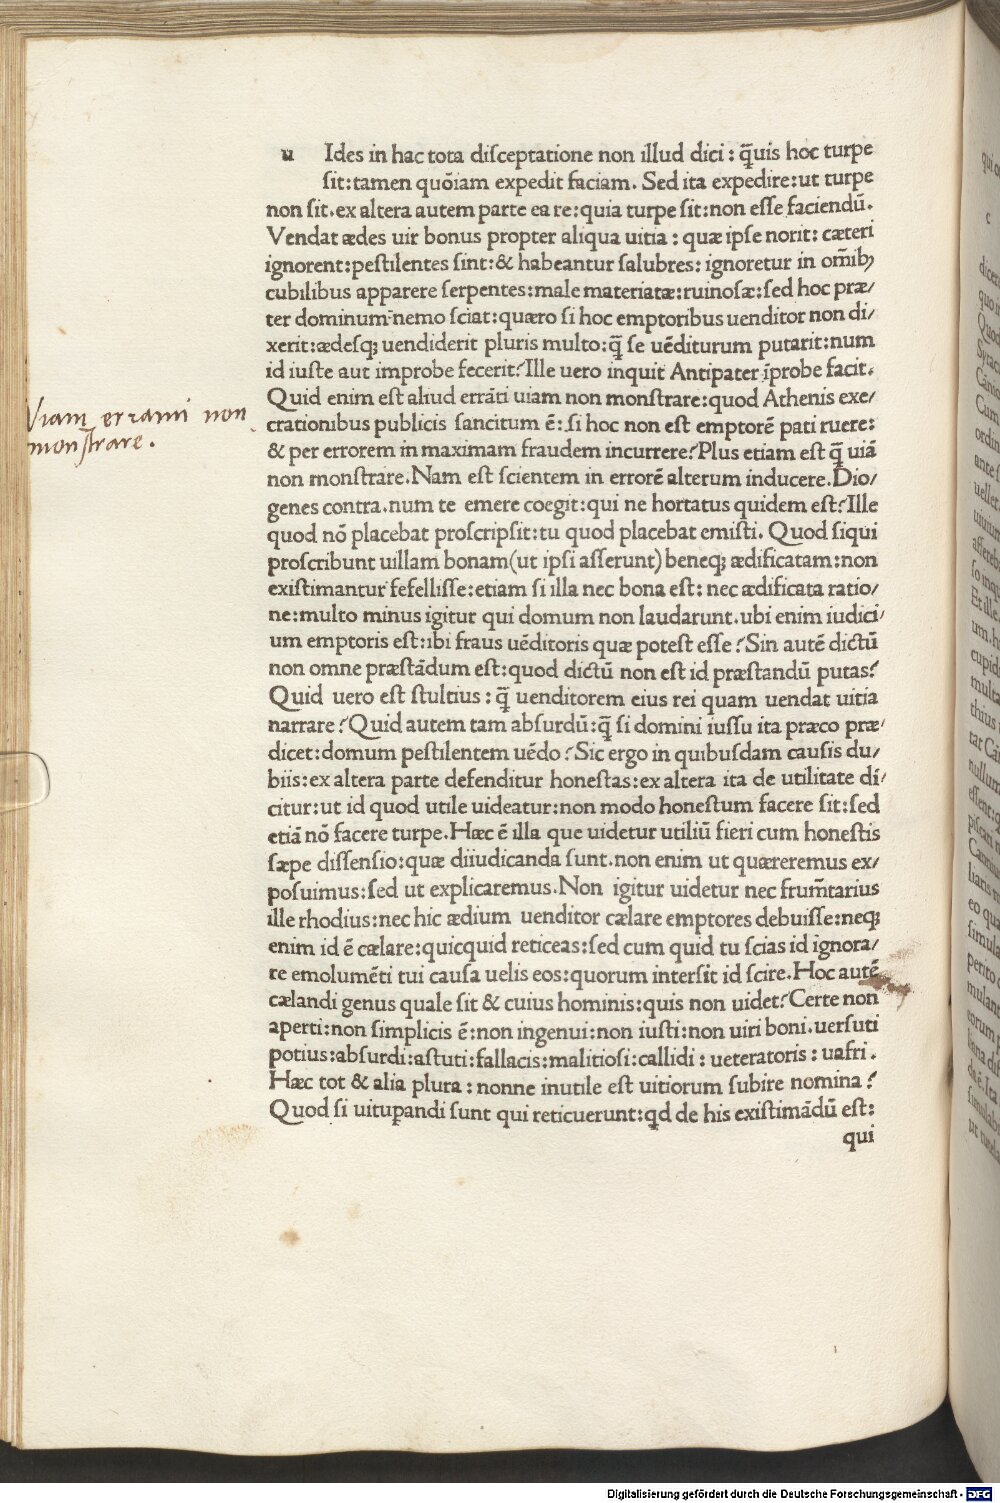 u Ides in hac tota diſceptatione non illud dici : q̄uis hoc turpe
ſit:tamen quõiam expedit faciam. Sed ita expedire:ut turpe
non ſit.ex altera autem parte ea re:quia turpe ſit:non eſſe faciendū.
Vendat ædes uir bonus propter aliqua uitia : quæ ipſe norit: cæteri
ignorent:peſtilentes ſint:& habeantur ſalubres: ignoretur in om̄ibꝫ
cubilibus apparere ſerpentes:male materiatæ:ruinoſæ:ſed hoc præ/
ter dominum nemo ſciat:quæro ſi hoc emptoribus uenditor non di/
xerit:ædeſqꝫ uendiderit pluris multo:q̄ ſe uēditurum putarit:num
id iuſte aut improbe fecerit?Ille uero inquit Antipater īprobe facit.
Quid enim eſt aliud errāti uiam non monſtrare:quod Athenis exe/
crationibus publicis ſancitum ē: ſi hoc non eſt emptorē pati ruere:
& per errorem in maximam fraudem incurrere?Plus etiam eſt q̄ uiā
non monſtrare.Nam eſt ſcientem in errorē alterum inducere.Dio/
genes contra.num te emere coegit:qui ne hortatus quidem eſt?Ille
quod nō placebat proſcripſit:tu quod placebat emiſti. Quod ſiqui
proſcribunt uillam bonam(ut ipſi aſſerunt)beneqꝫ ædificatam:non
exiſtimantur fefelliſſe:etiam ſi illa nec bona eſt: nec ædificata ratio/
ne:multo minus igitur qui domum non laudarunt.ubi enim iudici/
um emptoris eſt:ibi fraus uēditoris quæ poteſt eſſe?Sin autē dictū
non omne præſtādum eſt:quod dictū non eſt id præſtandū putas?
Quid uero eſt ſtultius : q̄ uenditorem eius rei quam uendat uitia
narrare?Quid autem tam abſurdū:q̄ ſi domini iuſſu ita præco præ/
dicet:domum peſtilentem uēdo?Sic ergo in quibuſdam cauſis du/
biis:ex altera parte defenditur honeſtas:ex altera ita de utilitate di/
citur:ut id quod utile uideatur:non modo honeſtum facere ſit:ſed
etiā nō facere turpe.Hæc ē illa que uidetur utiliū fieri cum honeſtis
ſæpe diſſenſio:quæ diiudicanda ſunt.non enim ut quæreremus ex/
poſuimus:ſed ut explicaremus.Non igitur uidetur nec frum̄tarius
ille rhodius:nec hic ædium uenditor cælare emptores debuiſſe:neqꝫ
enim id ē cælare:quicquid reticeas:ſed cum quid tu ſcias id ignora/
re emolumēti tui cauſa uelis eos:quorum interſit id ſcire.Hoc autē
cælandi genus quale ſit & cuius hominis:quis non uidet?Certe non
aperti:non ſimplicis ē:non ingenui:non iuſti:non uiri boni.uerſuti
potius:abſurdi:aſtuti:fallacis:malitioſi:callidi : ueteratoris : uafri .
Hæc tot & alia plura : nonne inutile eſt uitiorum ſubire nomina ?
Quod ſi uituꝑandi ſunt qui reticuerunt:qd de his exiſtimādū eſt:
qui
Viam erranti non
monſtrare.
Digitalisierung gefördert durch die Deutsche Forschungsgemeinschaft - DFG